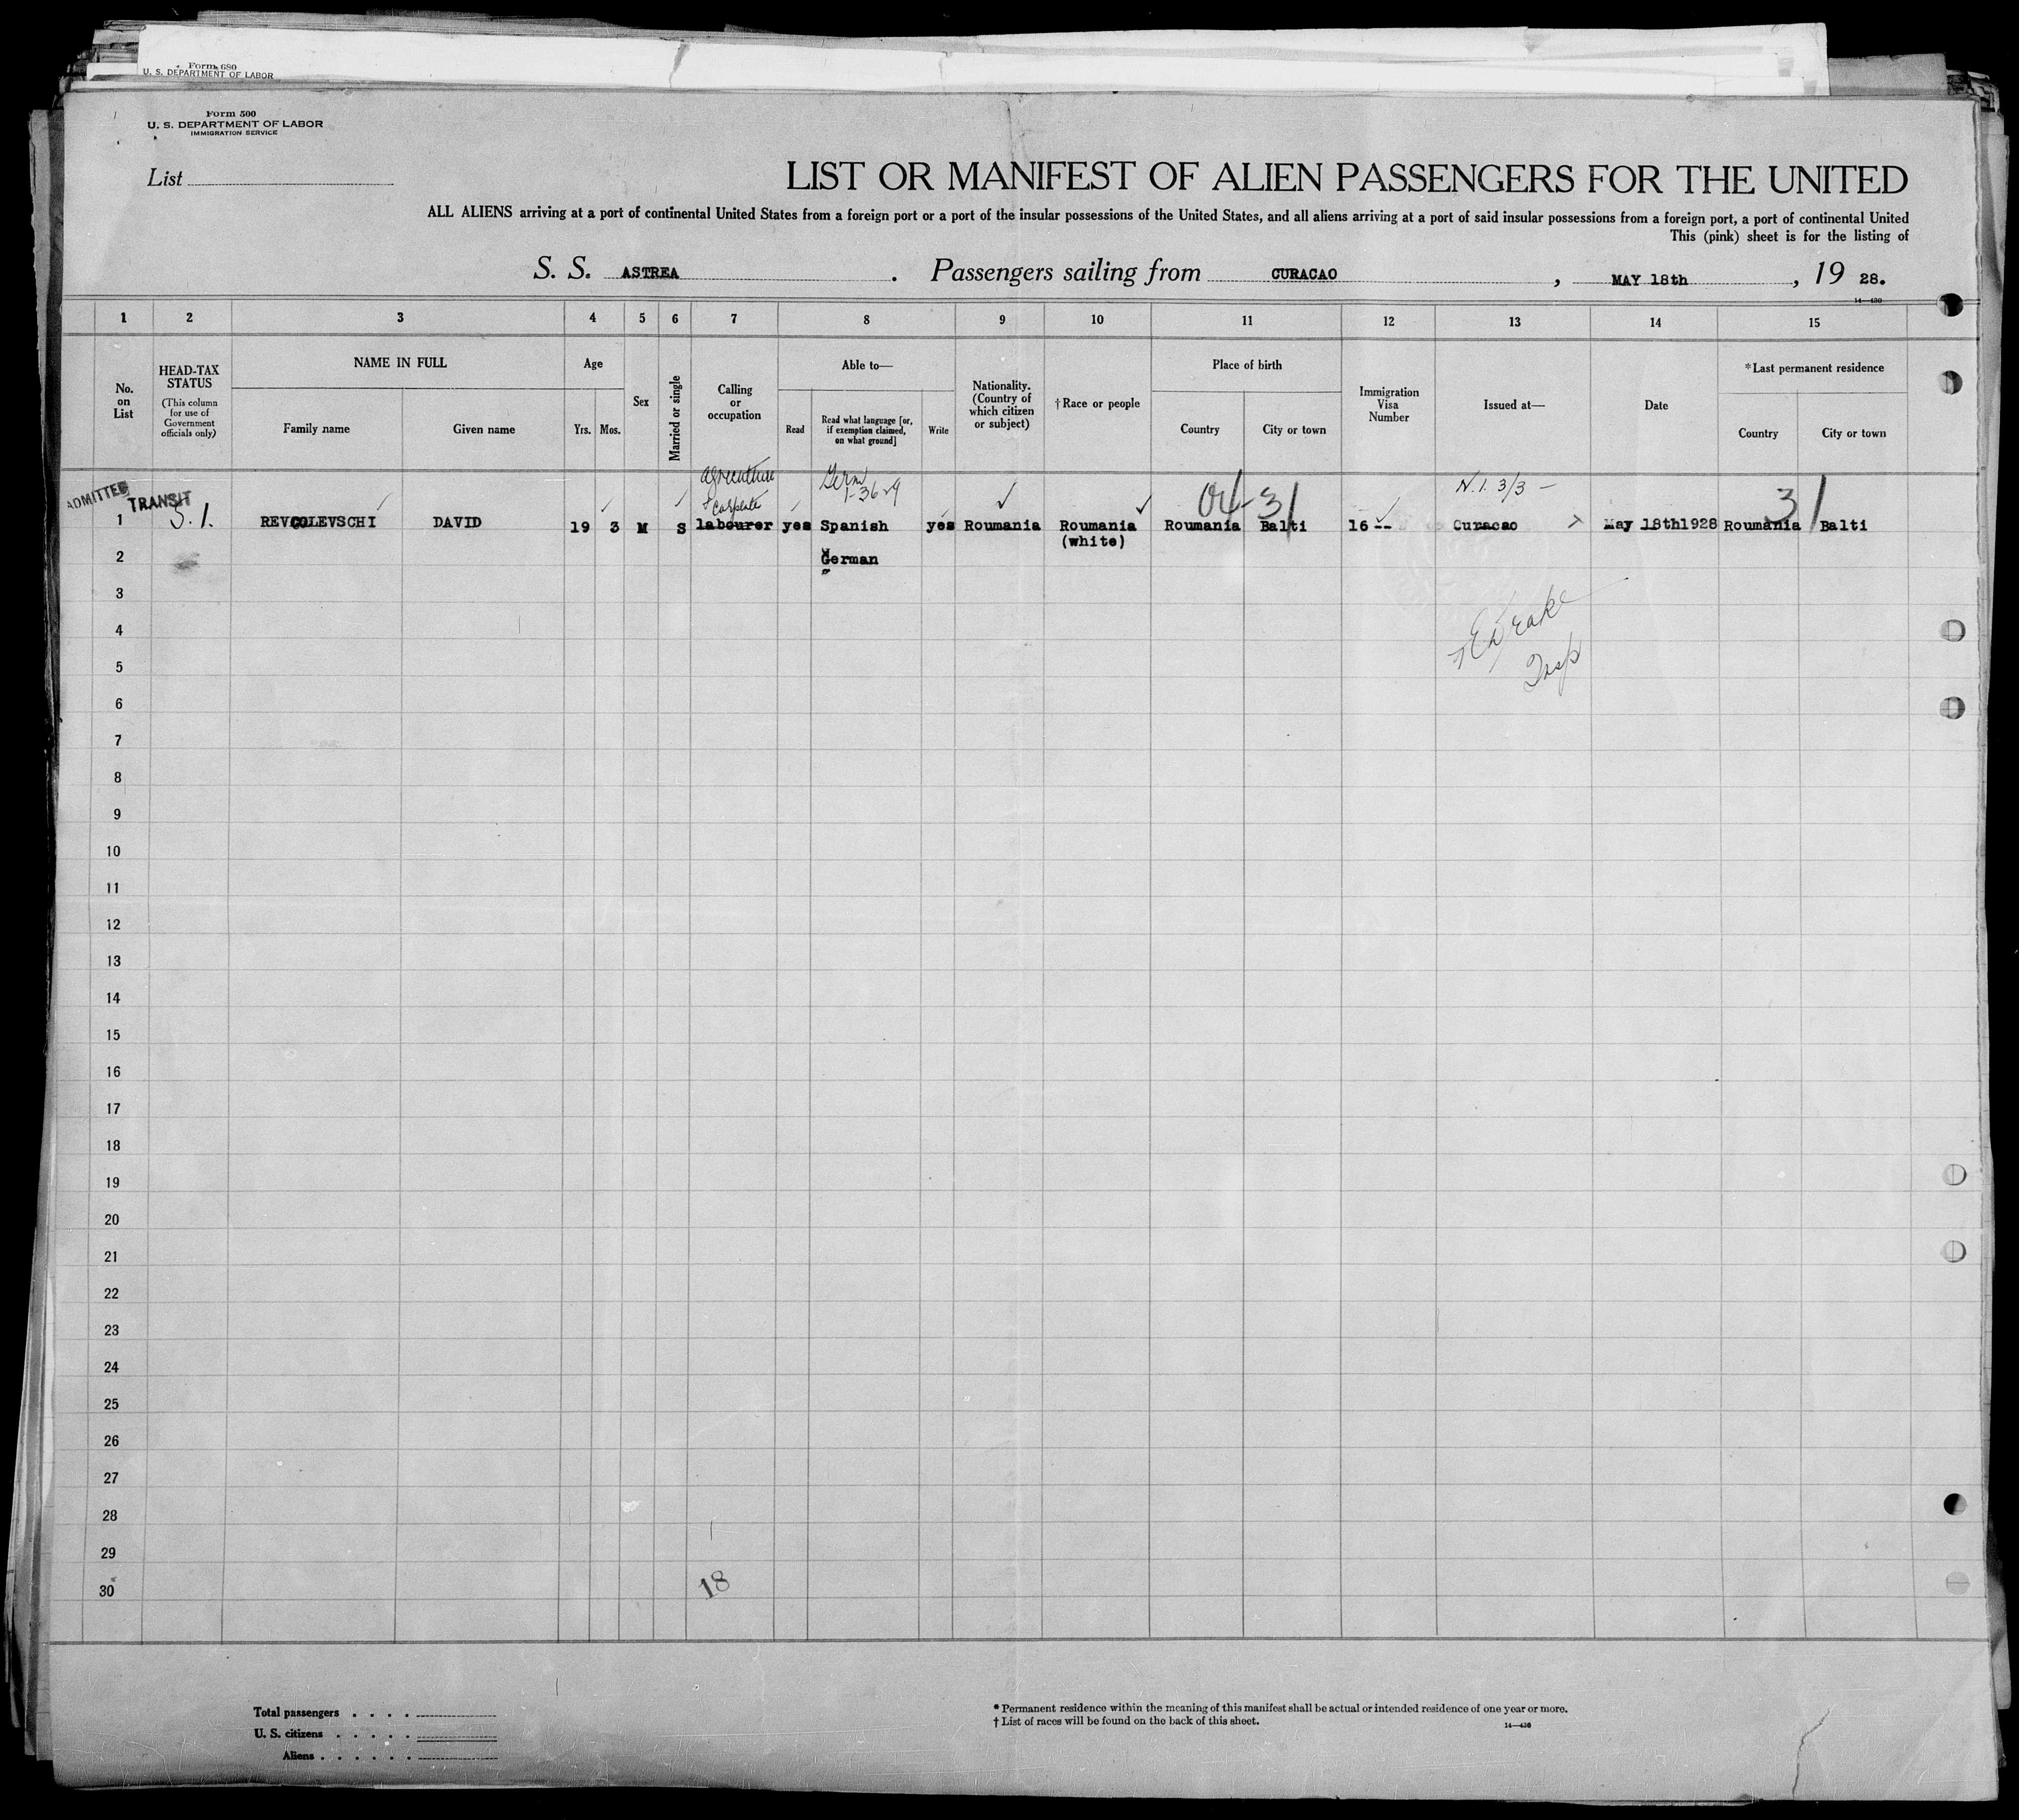 Form 680
U. S. DEPARTMENT OF LABOR
Form 500
U. S. DEPARTMENT OF LABOR
IMMIGRATION SERVICE
List
LIST OR MANIFEST OF ALIEN PASSENGERS FOR THE UNITED
ALL ALIENS arriving at a port of continental United States from a foreign port or a port of the insular possessions of the United States, and all aliens arriving at a port of said insular possessions from a foreign port, a port of continental United
This (pink) sheet is for the listing of
S. S. ASTREA. Passengers sailing from CURACAO, MAY 18th, 19 28.
14—430
1 2 3 4 5 6 7 8 9 10 11 12 13 14 15
No. on List
HEAD-TAX STATUS
(This column for use of Government officials only)
NAME IN FULL
Family name
Given name
Age
Yrs.
Mos.
Sex
Married or single
Calling or occupation
Able to—
Read
Read what language [or, if exemption claimed, on what ground]
Write
Nationality. (Country of which citizen or subject)
†Race or people
Place of birth
Country
City or town
Immigration Visa Number
Issued at—
Date
*Last permanent residence
Country
City or town
agriculture
Germ
1-3629
N.I. 3/3 —
04-31
31
ADMITTED
TRANSIT
1 REVCOLEVSCHI DAVID 19 3 M S labourer yes Spanish yes Roumania Roumania Roumania Balti 16 -- Curacao May 18th1928 Roumania Balti
(white)
2 German
3
4
Insp
5
6
7
8
9
10
11
12
13
14
15
16
17
18
19
20
21
22
23
24
25
26
27
28
29
30
18
Total passengers . . . .
U. S. citizens . . . . .
Aliens . . . . . .
* Permanent residence within the meaning of this manifest shall be actual or intended residence of one year or more.
† List of races will be found on the back of this sheet.
14—430